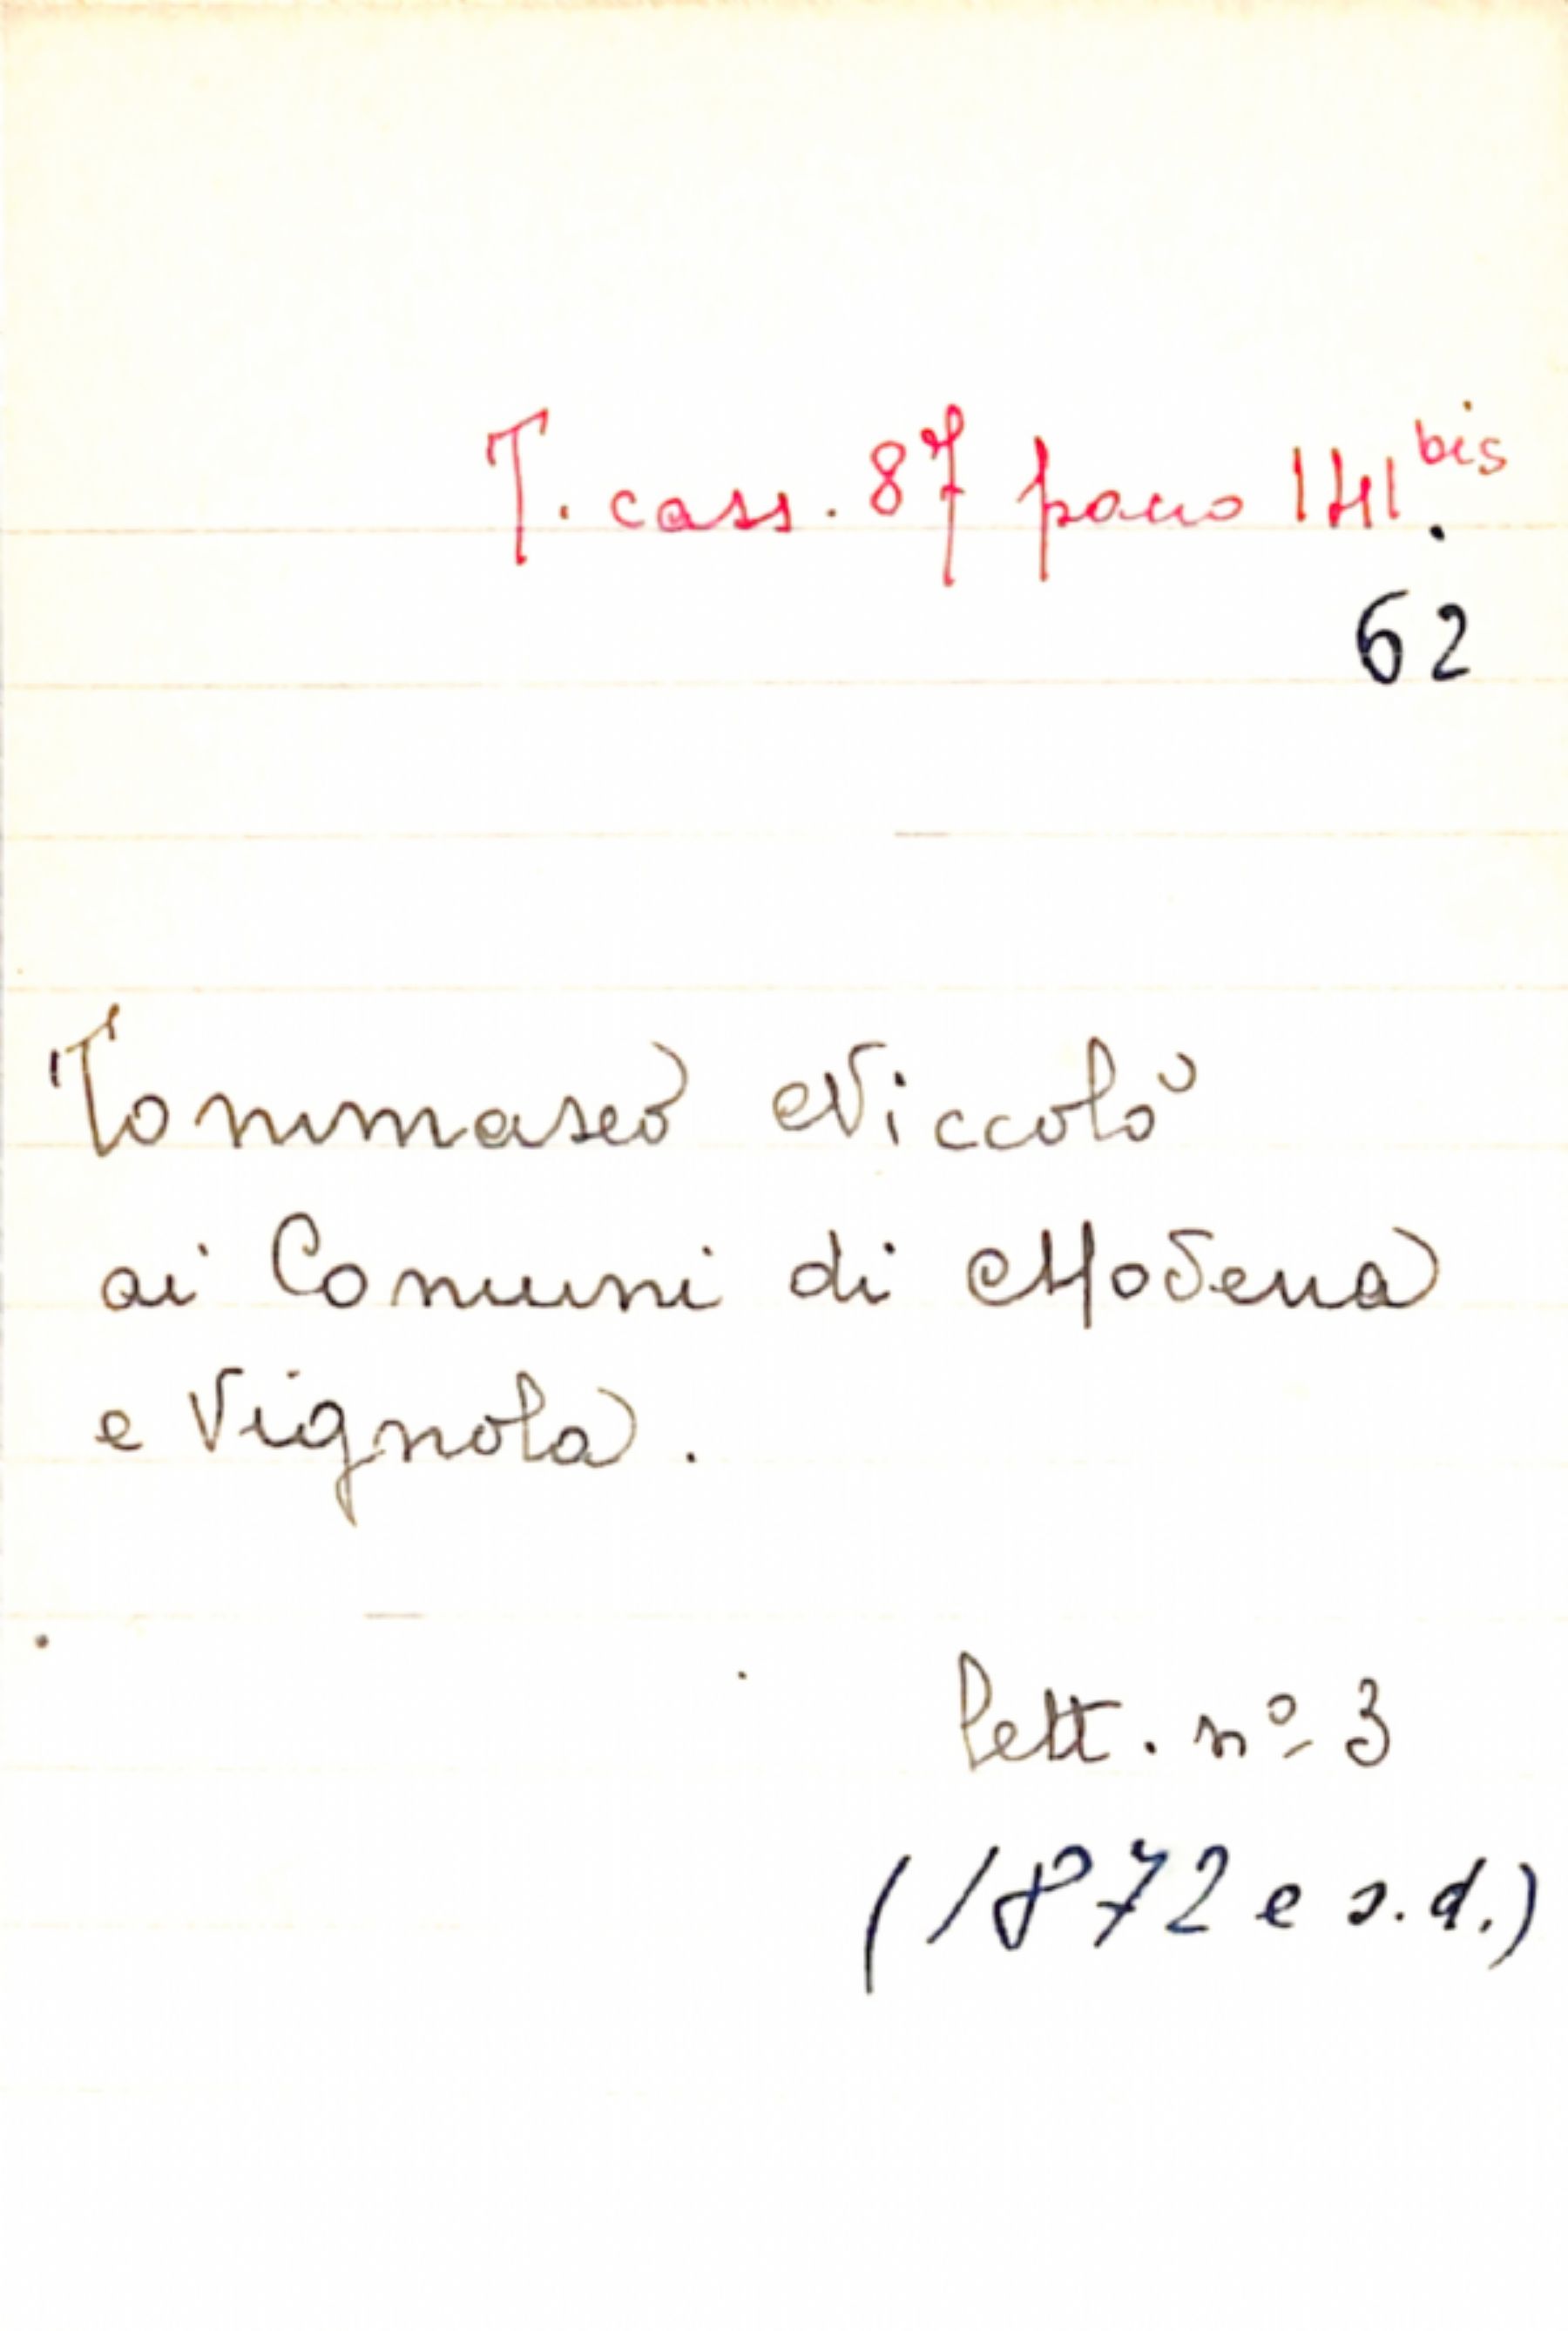 T. cass. 87 pacco 141 bis.
62
Tommaseo Niccolò
ai Comuni di Modena
e Vignola.
Lett. nº 3
(1872 e s.d.)